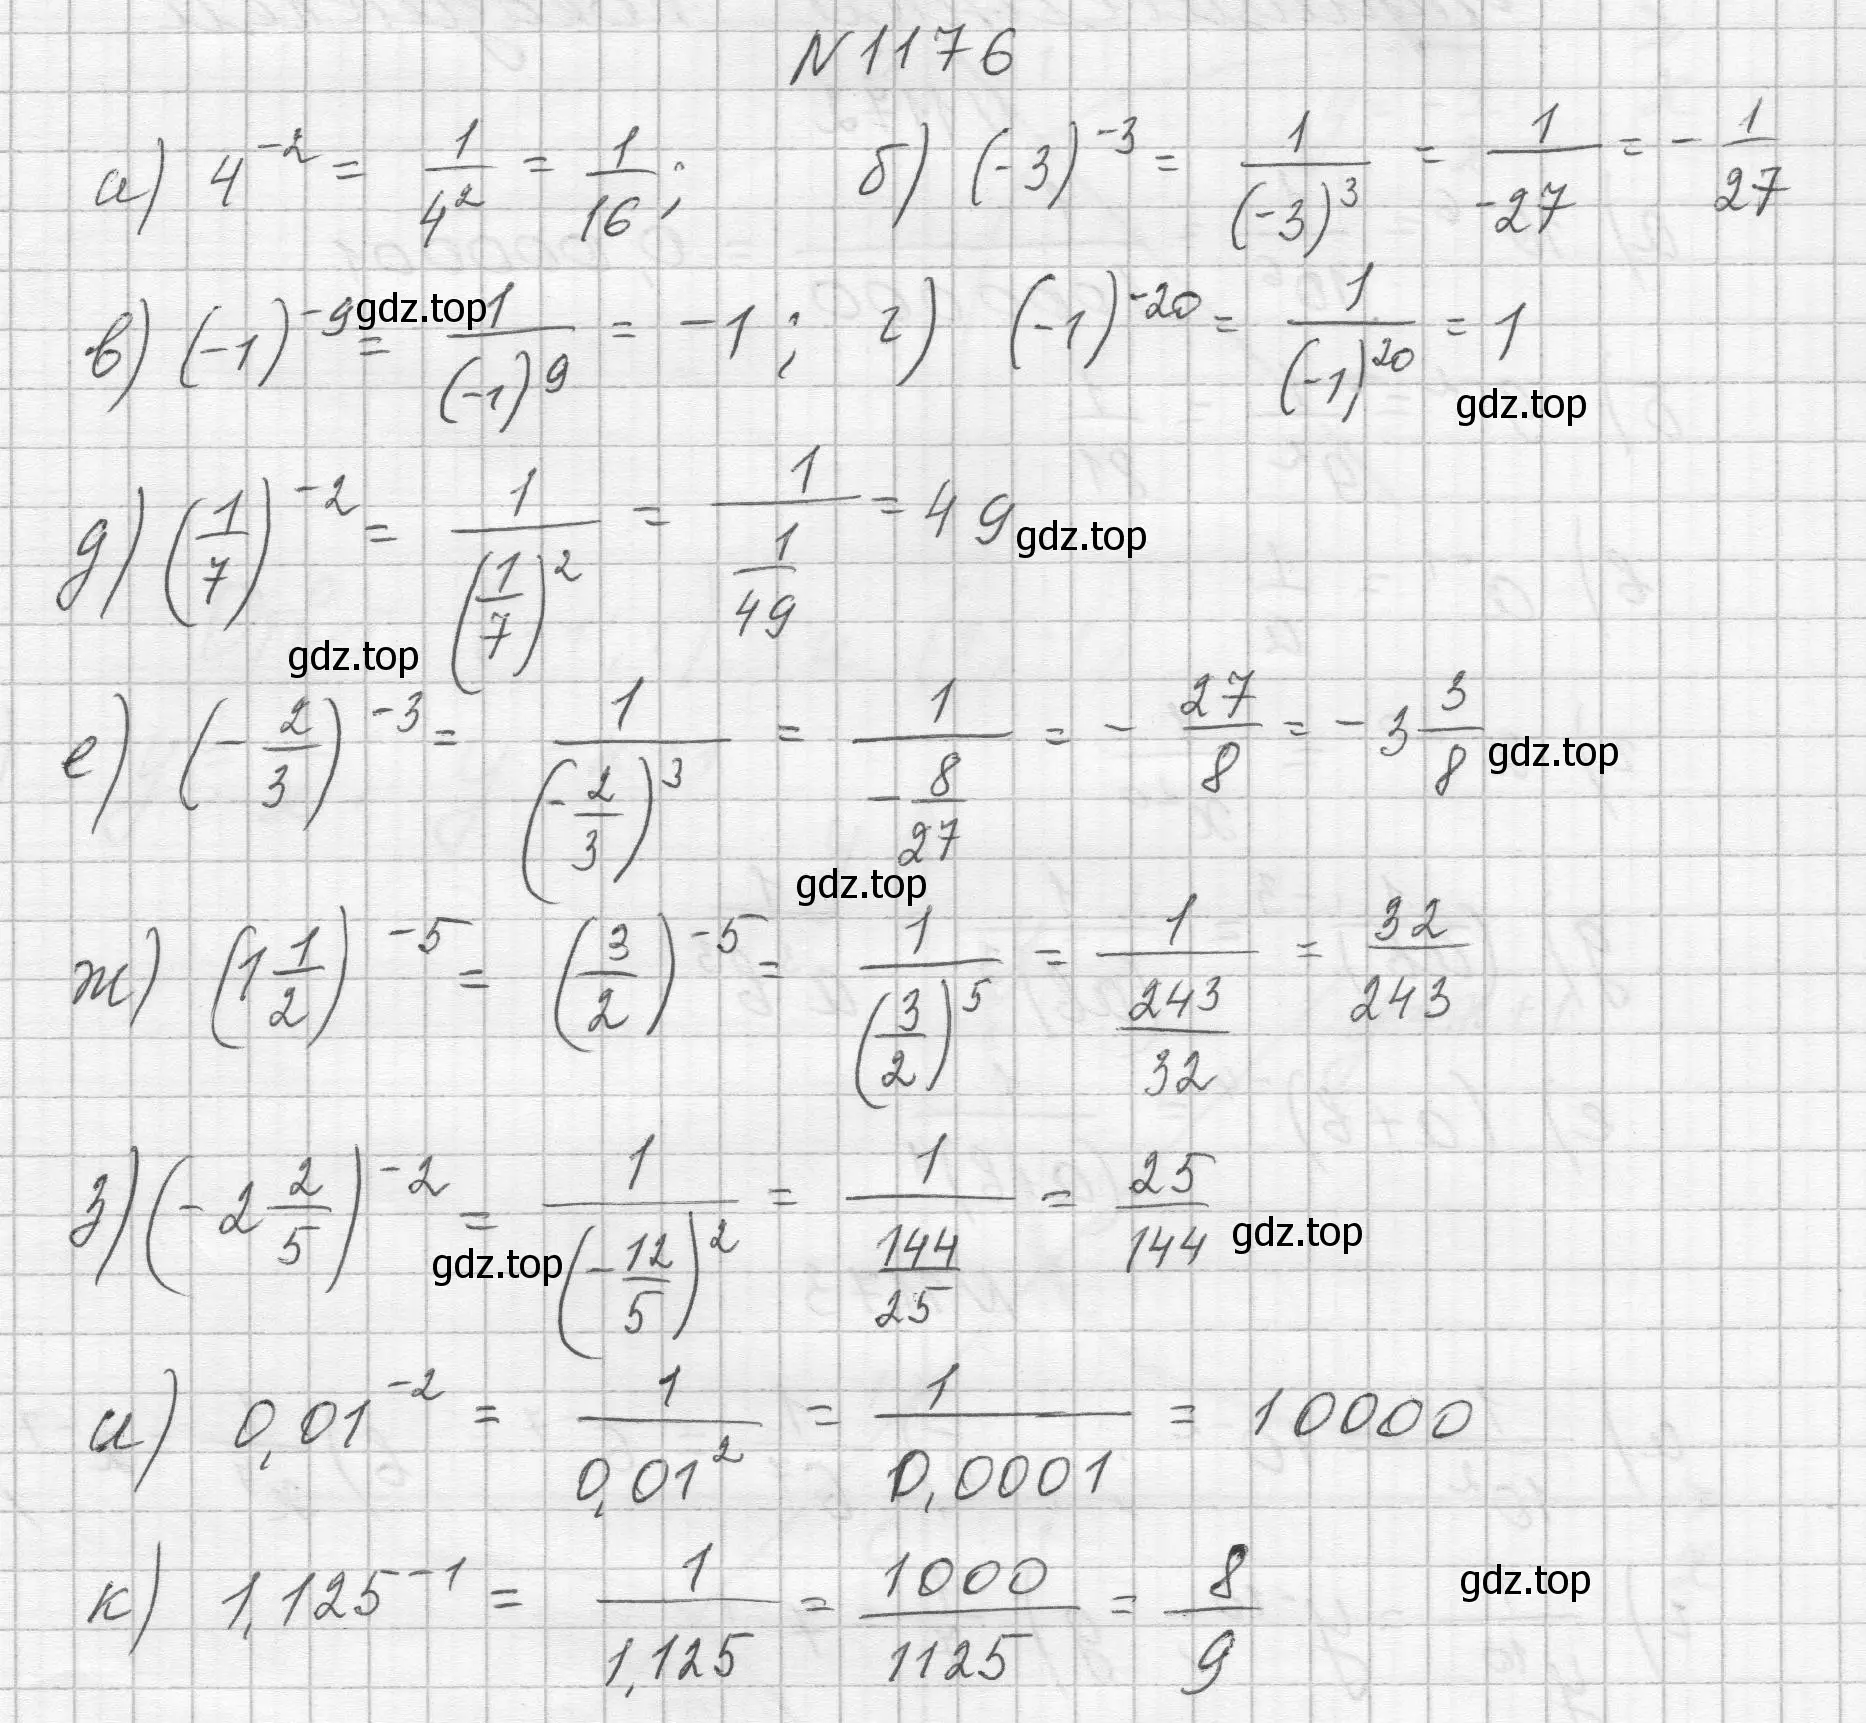 N 1176
а) 4^{-2} = \frac{1}{4^2} = \frac{1}{16}; б) (-3)^{-3} = \frac{1}{(-3)^3} = \frac{1}{-27} = -\frac{1}{27}
в) (-1)^{-9} = \frac{1}{(-1)^9} = -1; г) (-1)^{-20} = \frac{1}{(-1)^{20}} = 1
gdz.top
gdz.top
д) (\frac{1}{7})^{-2} = \frac{1}{(\frac{1}{7})^2} = \frac{1}{\frac{1}{49}} = 49
gdz.top
gdz.top
е) (-\frac{2}{3})^{-3} = \frac{1}{(-\frac{2}{3})^3} = \frac{1}{-\frac{8}{27}} = -\frac{27}{8} = -3\frac{3}{8}
gdz.top
gdz.top
ж) (1\frac{1}{2})^{-5} = (\frac{3}{2})^{-5} = \frac{1}{(\frac{3}{2})^5} = \frac{1}{\frac{243}{32}} = \frac{32}{243}
з) (-2\frac{2}{5})^{-2} = \frac{1}{(-\frac{12}{5})^2} = \frac{1}{\frac{144}{25}} = \frac{25}{144}
gdz.top
gdz.top
и) 0,01^{-2} = \frac{1}{0,01^2} = \frac{1}{0,0001} = 10000
к) 1,125^{-1} = \frac{1}{1,125} = \frac{1000}{1125} = \frac{8}{9}
gdz.top